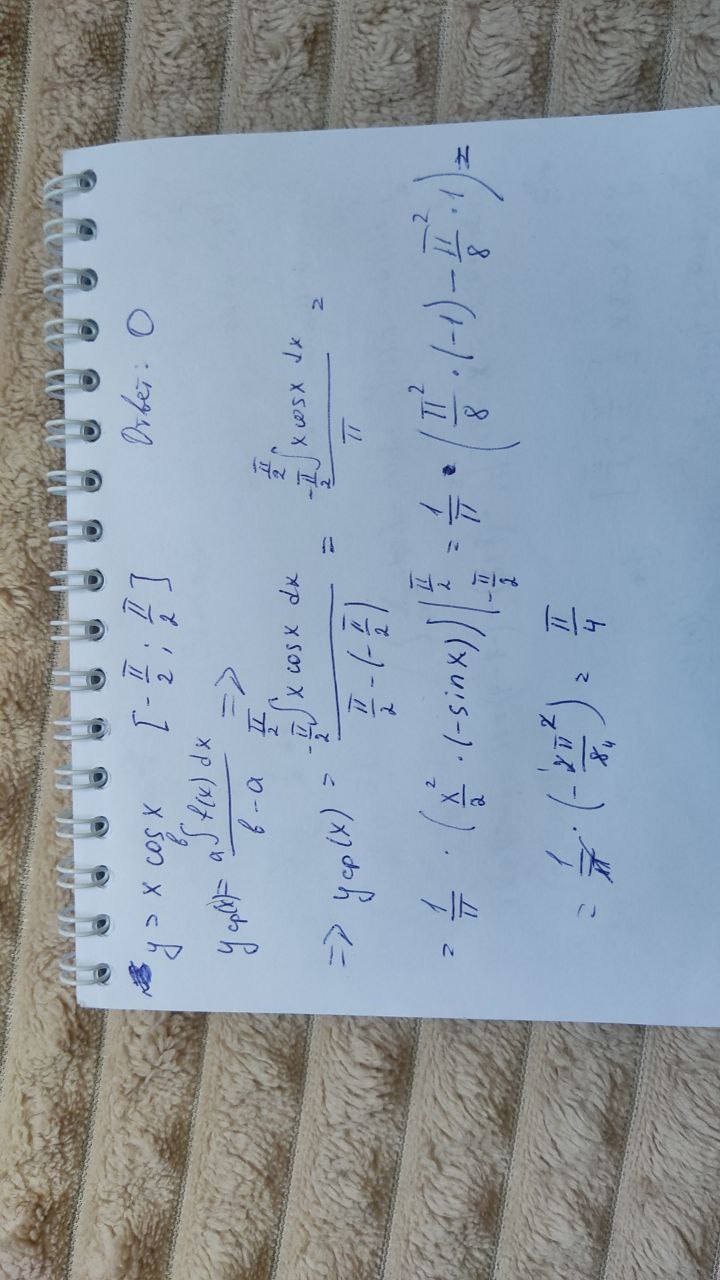 y = x cos x [-π/2; π/2] Ответ: 0
yср(x) = a∫b f(x) dx / b - a =>
=> yср(x) = -π/2∫π/2 x cos x dx / π/2 - (-π/2) = -π/2∫π/2 x cos x dx / π =
= 1/π · (x²/2 · (-sin x)) |π/2 -π/2 = 1/π · (π²/8 · (-1) - π²/8 · 1) =
= 1/π · (-2π²/8 4) = π/4